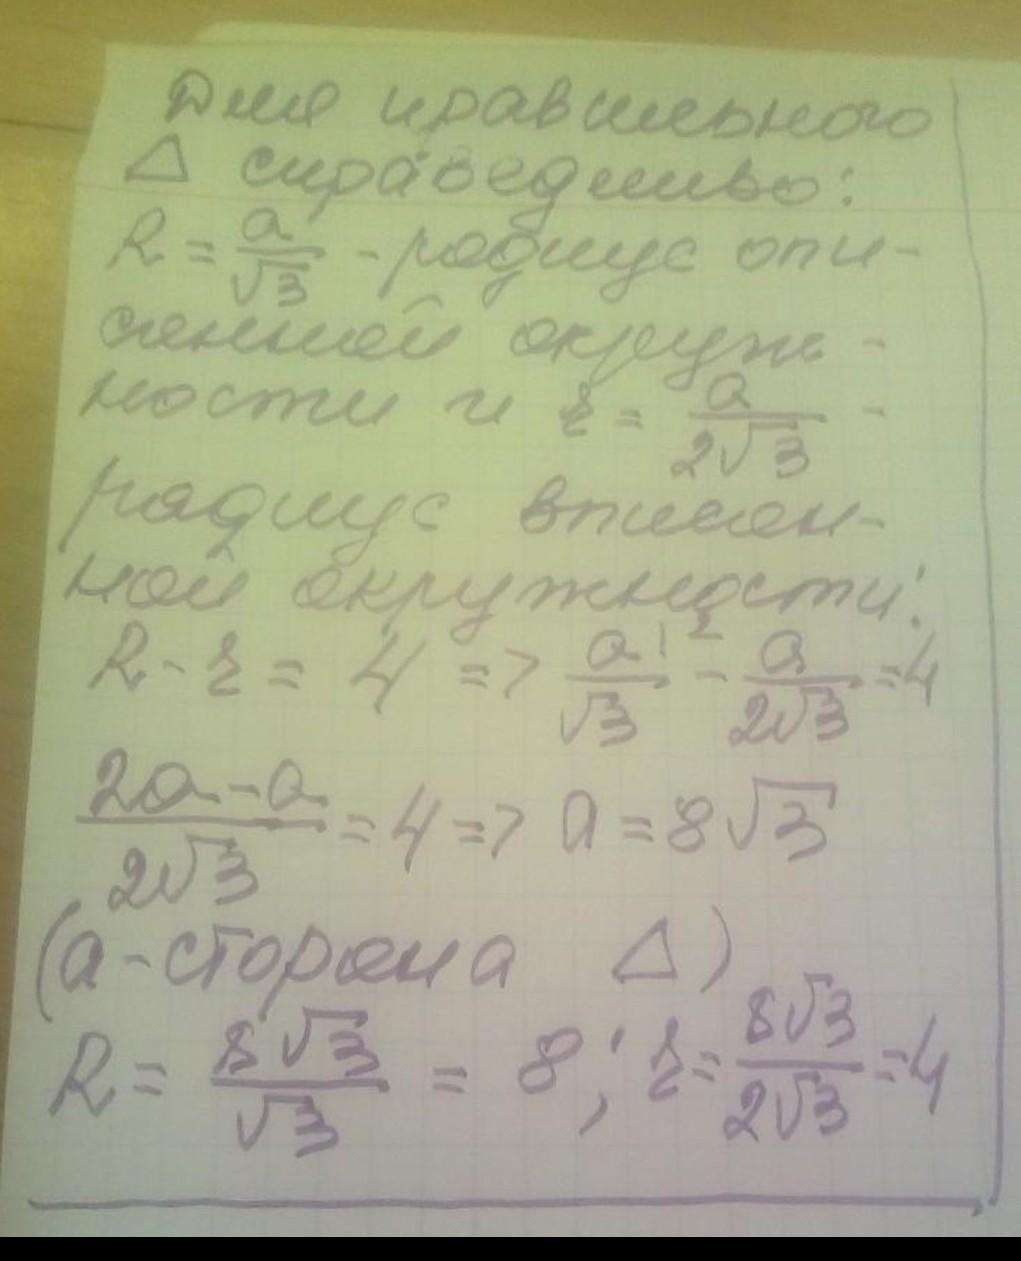 Для правильного
Δ справедливо:
R = a/√3 - радиус опи-
санной окруж-
ности и r = a/2√3 -
радиус вписан-
ной окружности:
R - r = 4 => a/√3 - a/2√3 = 4
2a-a/2√3 = 4 => a = 8√3
(a - сторона Δ)
R = 8√3/√3 = 8; r = 8√3/2√3 = 4